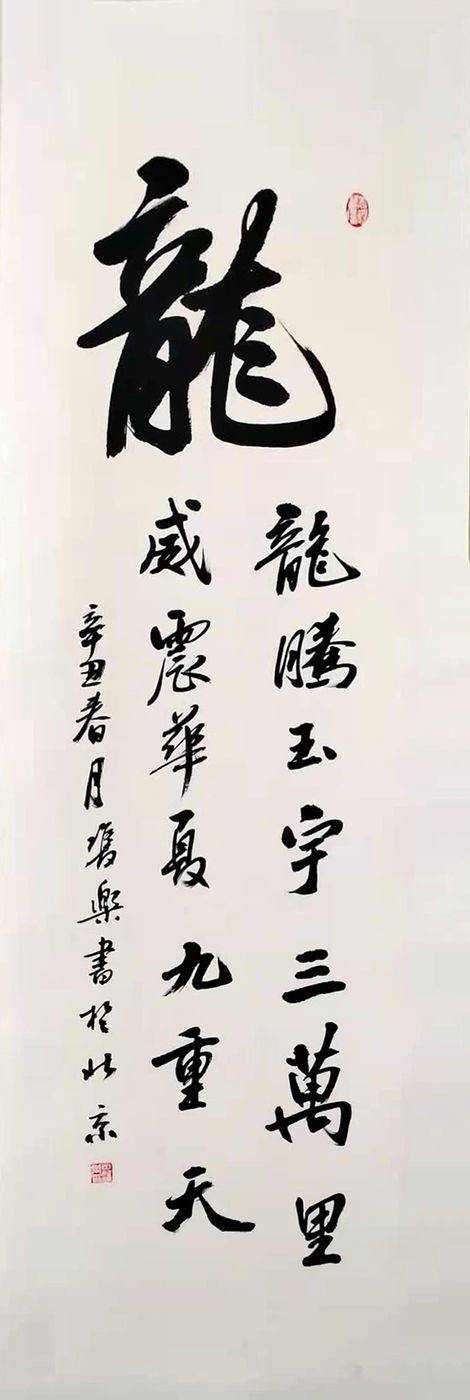 龍
龍騰玉宇三萬里
威震華夏九重天
辛丑春月 樂書於北京